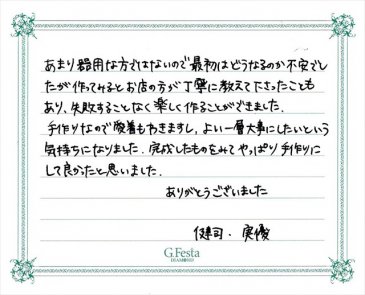 あまり器用な方ではないので最初はどうなるのか不安でし
たが作ってみるとお店の方が丁寧に教えて下さったことも
あり、失敗することなく楽しく作ることができました。
手作りなので愛着もわきますし、よい一層大事にしたいという
気持ちになりました。完成したものをみてやっぱり手作りに
して良かったと思いました。
ありがとうございました
健司・実優
G.Festa
DIAMOND